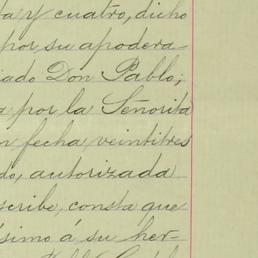 ta y cuatro, dicho
por su apodera-
iado Don Pablo;
a por la Señorita
n fecha veintitres
do, autorizada
scribe, consta que
ísimo á su her-